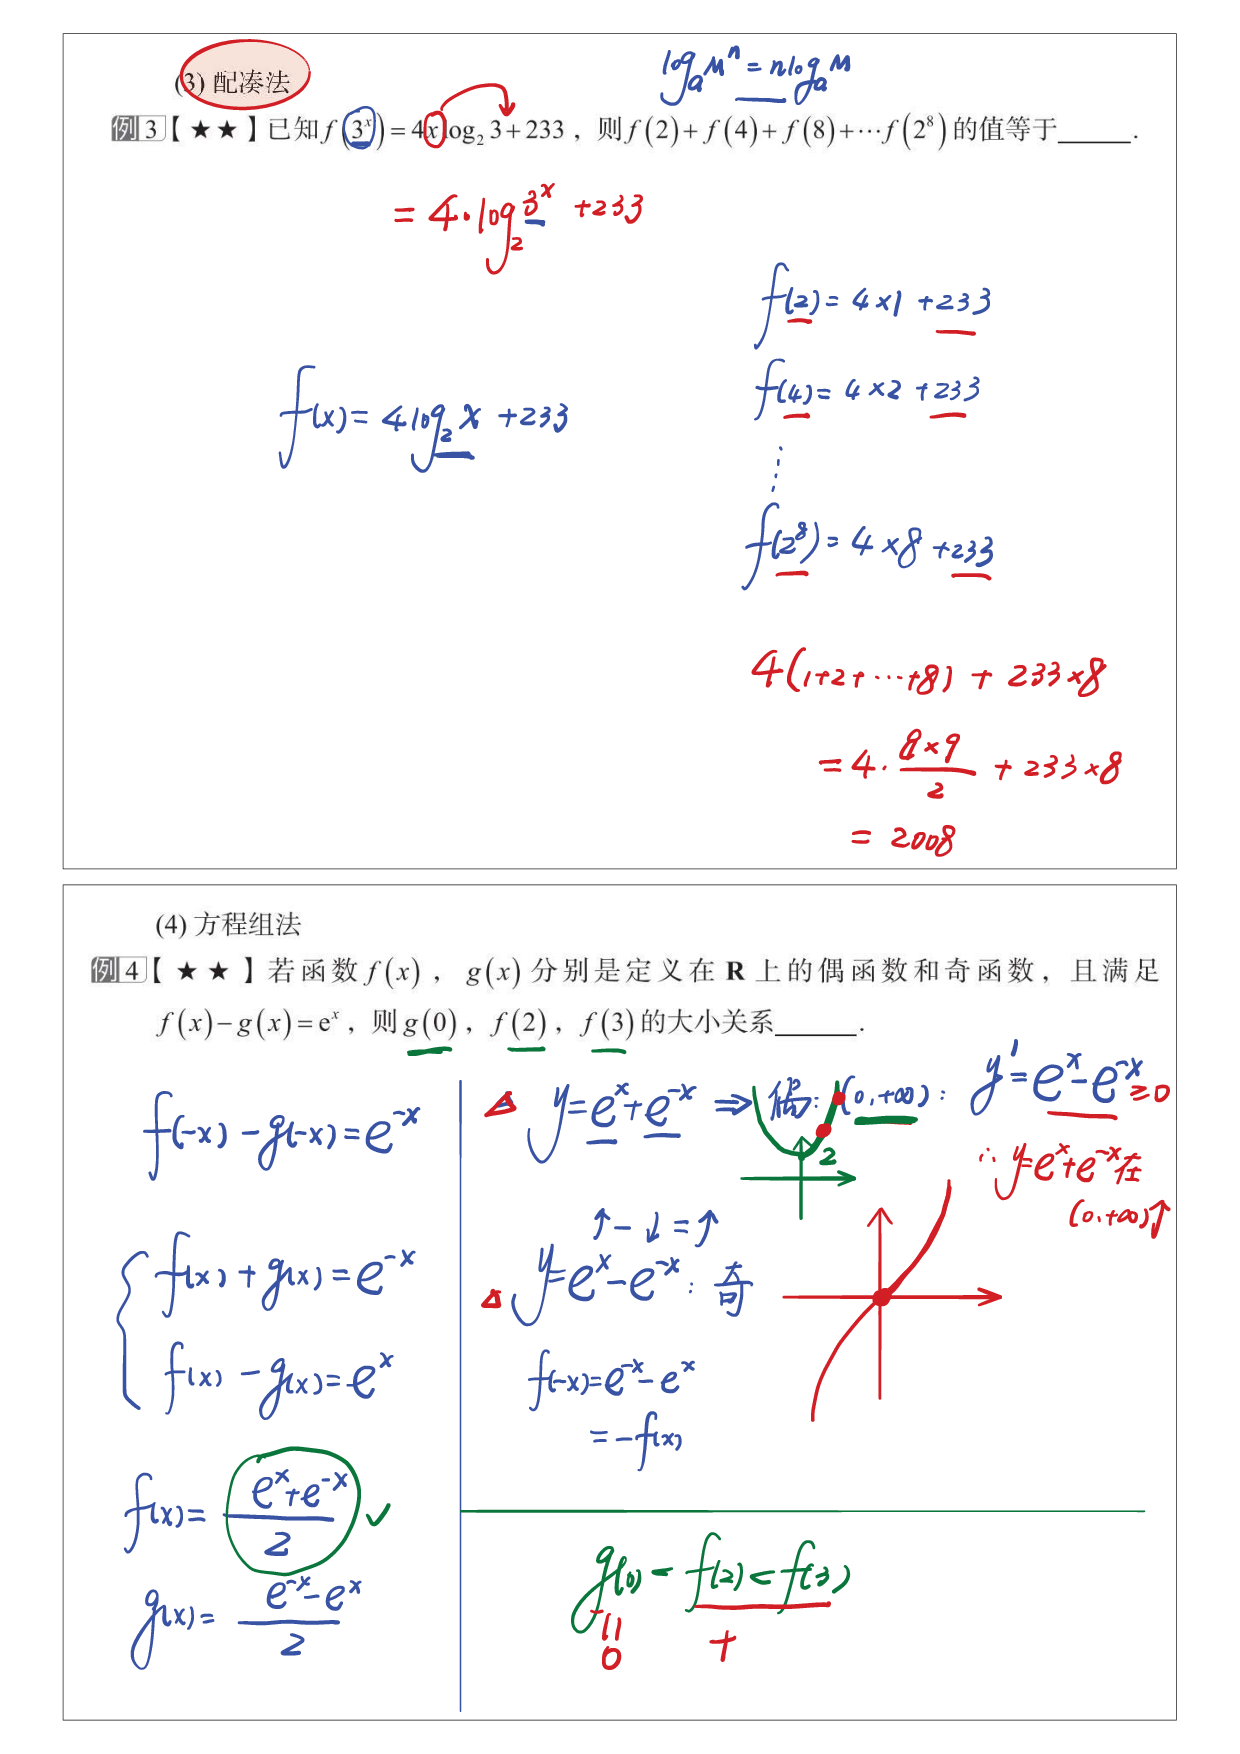 (3) 配凑法
logₐMⁿ = nlogₐM
例3【★★】已知 f(3ˣ) = 4x log₂ 3 + 233，则 f(2) + f(4) + f(8) + ⋯ f(2⁸) 的值等于______.
= 4·log₂3ˣ + 233
f(2) = 4×1 + 233
f(4) = 4×2 + 233
f(x) = 4log₂x + 233
⋮
f(2⁸) = 4×8 + 233
4(1+2+⋯+8) + 233×8
= 4·(8×9)/2 + 233×8
= 2008
(4) 方程组法
例4【★★】若函数 f(x)，g(x) 分别是定义在 R 上的偶函数和奇函数，且满足
f(x) − g(x) = eˣ，则 g(0)，f(2)，f(3) 的大小关系______.
f(−x) − g(−x) = e⁻ˣ
f(x) + g(x) = e⁻ˣ
f(x) − g(x) = eˣ
f(x) = (eˣ + e⁻ˣ)/2 ✓
g(x) = (e⁻ˣ − eˣ)/2
△ y = eˣ + e⁻ˣ ⇒ 偶: (0,+∞): y' = eˣ − e⁻ˣ ≥ 0
2
∴ y = eˣ + e⁻ˣ 在
(0,+∞)↑
↑ − ↓ = ↑
△ y = eˣ − e⁻ˣ : 奇
f(−x) = e⁻ˣ − eˣ
= −f(x)
g(0) < f(2) < f(3)
11
0 +